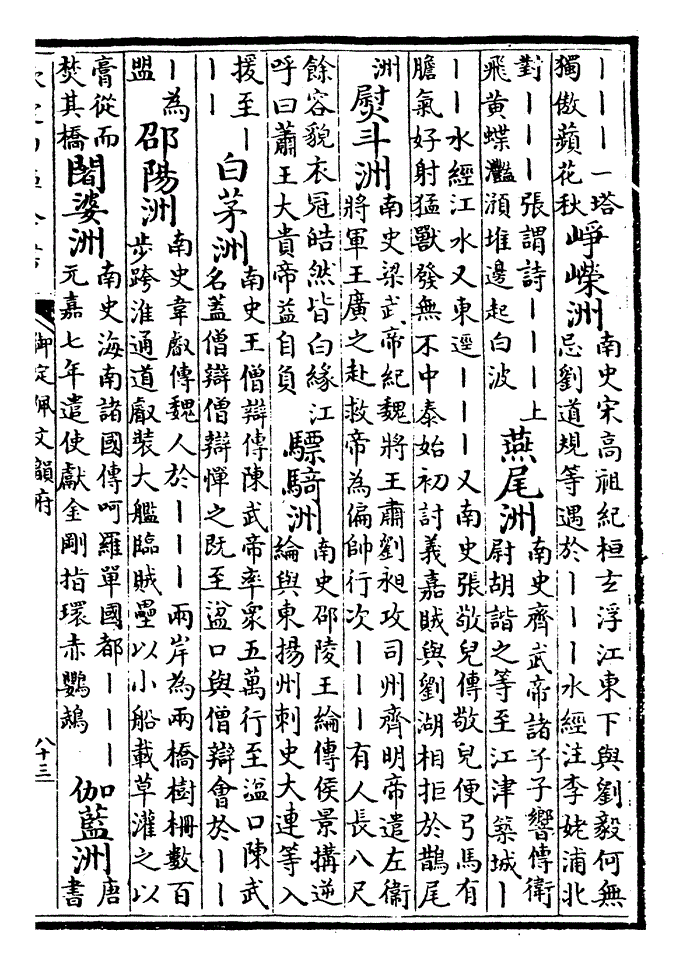 ｜｜｜一塔
獨傲蘋花秋
崢嶸洲
南史宋高祖紀桓玄浮江東下與劉毅何無
忌劉道規等遇於｜｜｜水經注李姥浦北
對｜｜｜｜張謂詩｜｜｜｜上
飛黃蝶灩澦堆邊起白波
燕尾洲
南史齊武帝諸子子響傳衛
尉胡諧之等至江津築城｜
｜｜水經江水又東逕｜｜｜又南史張敬兒傳敬兒便弓馬有
膽氣好射猛獸發無不中泰始初討義嘉賊與劉湖相拒於鵲尾
洲
熨斗洲
南史梁武帝紀魏將王肅劉昶攻司州齊明帝遣左衛
將軍王廣之赴救帝為偏帥行次｜｜｜有人長八尺
餘容貌衣冠皓然皆白緣江
呼曰蕭王大貴帝益自負
驃騎洲
南史邵陵王綸傳侯景搆逆
綸與東揚州刺史大連等入
援至｜
｜｜
白茅洲
南史王僧辯傳陳武帝率衆五萬行至湓口陳武
名蓋僧辯僧辯憚之既至湓口與僧辯會於｜｜
｜為
盟
邵陽洲
南史韋叡傳魏人於｜｜｜兩岸為兩橋樹柵數百
步跨淮通道叡裝大艦臨賊壘以小船載草灌之以
膏從而
焚其橋
闍婆洲
南史海南諸國傳呵羅單國都｜｜｜
元嘉七年遣使獻金剛指環赤鸚鵡
伽藍洲
唐
書
御定佩文韻府
八十三